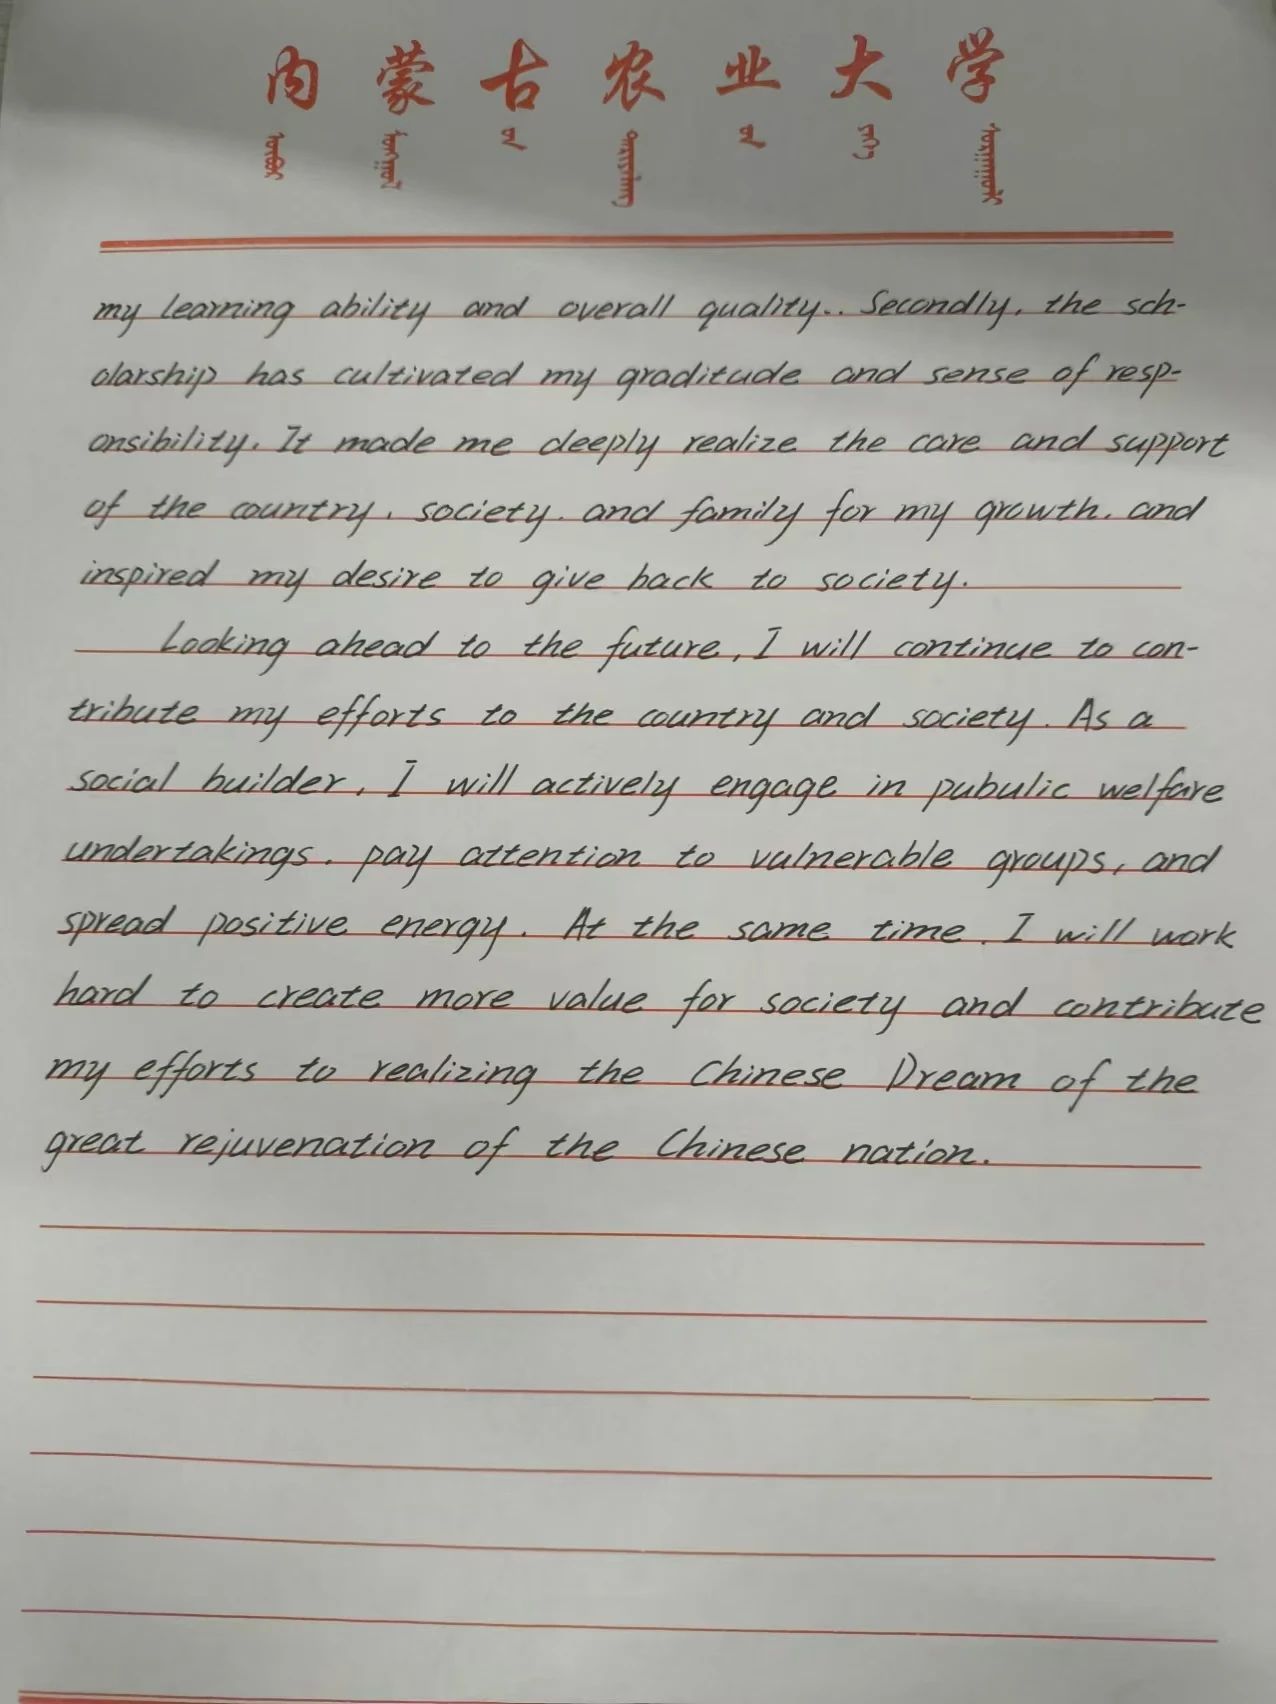 内蒙古农业大学
my learning ability and overall quality.. Secondly, the sch-
olarship has cultivated my graditude and sense of resp-
onsibility. It made me deeply realize the care and support
of the country, society. and family for my growth. and
inspired my desire to give back to society.
Looking ahead to the future, I will continue to con-
tribute my efforts to the country and society. As a
social builder, I will actively engage in pubulic welfare
undertakings. pay attention to vulnerable groups, and
spread positive energy. At the same time. I will work
hard to create more value for society and contribute
my efforts to realizing the Chinese Dream of the
great rejuvenation of the Chinese nation.